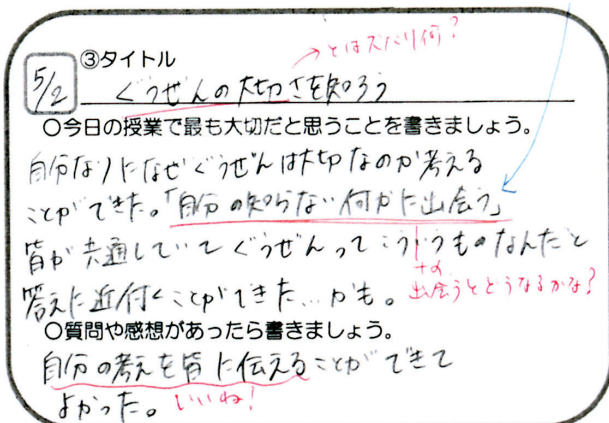 →とはズバリ何?
5/2
③タイトル
ぐうぜんの大切さを知ろう
○今日の授業で最も大切だと思うことを書きましょう。
自分なりになぜぐうぜんは大切なのか考える
ことができた。「自分の知らない何かに出会う」
皆が共通していてぐうぜんってこういうものなんだと
答えに近付くことができた…かも。
出会うとどうなるかな?
○質問や感想があったら書きましょう。
自分の考えを皆に伝えることができて
よかった。いいね!